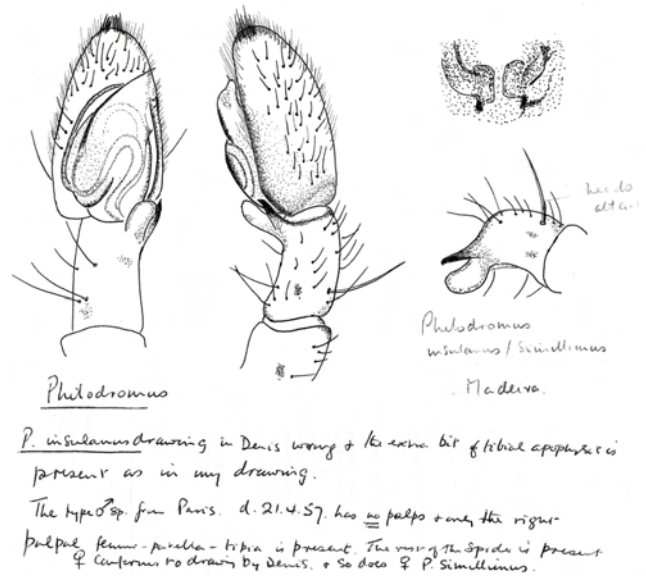 needs
Philodromus
insulanus / Simillimus
Madeira.
Philodromus
P. insulanus drawing in Denis wrong & the extra bit of tibial apophysis is
present as in my drawing.
The type ♂ sp. from Paris. d. 21.4.57. has no palps & only the right
palpal femur - patella - tibia is present. The rest of the spider is present
♀ conforms to drawing by Denis. & so does ♀ P. Simillimus.